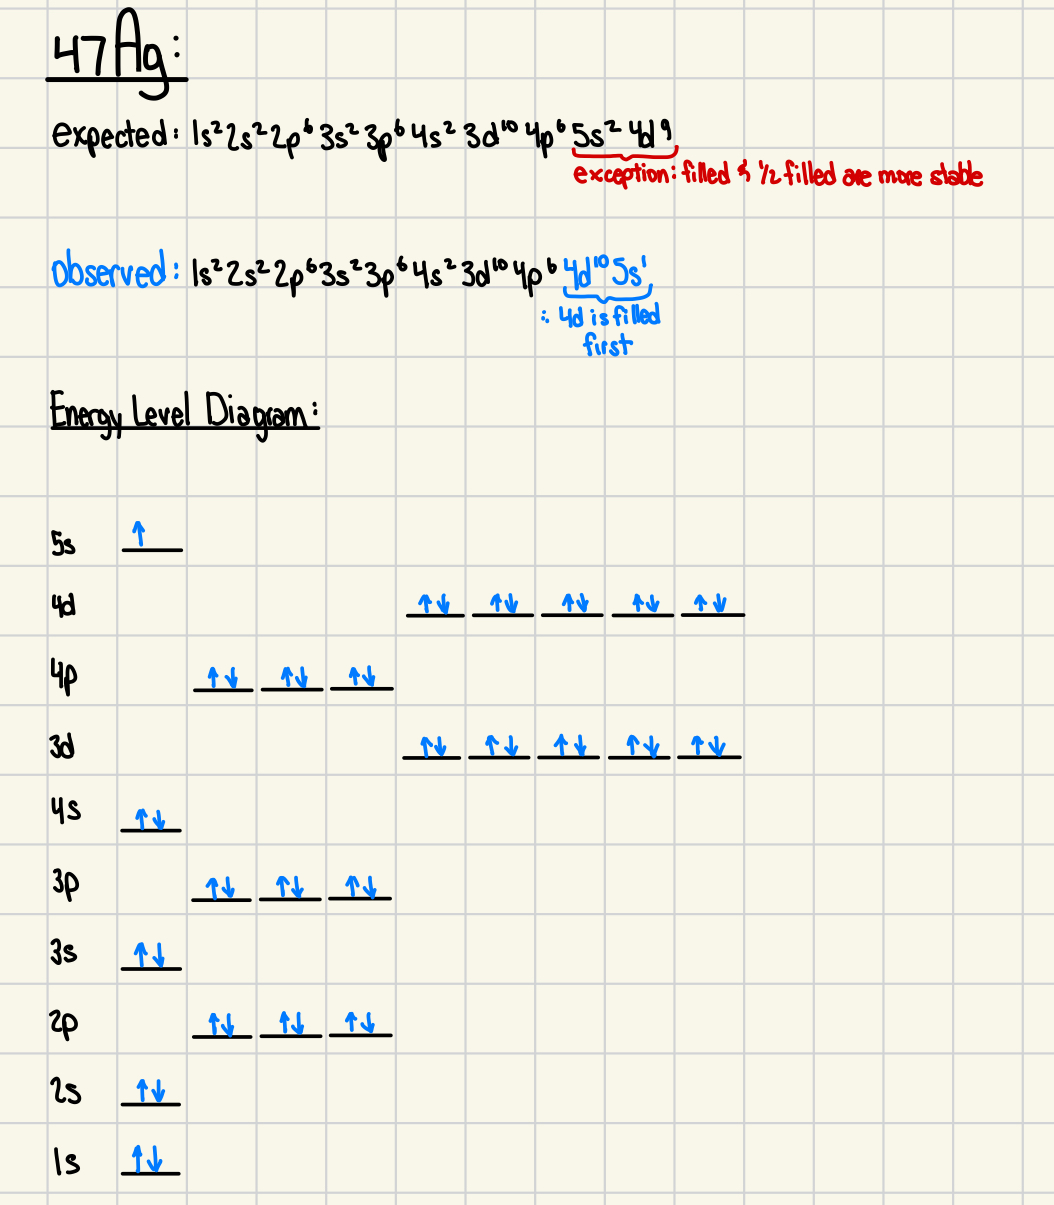 47Ag:
expected: 1s² 2s² 2p⁶ 3s² 3p⁶ 4s² 3d¹⁰ 4p⁶ 5s² 4d⁹
exception: filled & ½ filled are more stable
observed: 1s² 2s² 2p⁶ 3s² 3p⁶ 4s² 3d¹⁰ 4p⁶ 4d¹⁰ 5s¹
∴ 4d is filled
first
Energy Level Diagram:
5s ↑
4d ↑↓ ↑↓ ↑↓ ↑↓ ↑↓
4p ↑↓ ↑↓ ↑↓
3d ↑↓ ↑↓ ↑↓ ↑↓ ↑↓
4s ↑↓
3p ↑↓ ↑↓ ↑↓
3s ↑↓
2p ↑↓ ↑↓ ↑↓
2s ↑↓
1s ↑↓